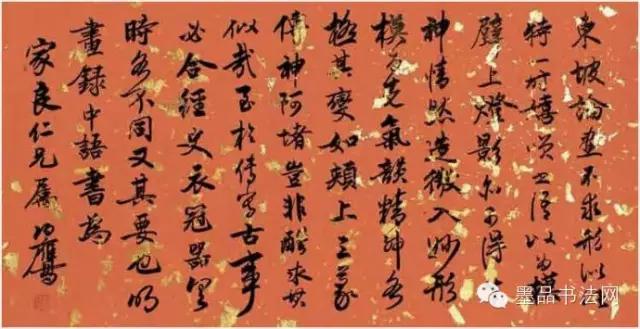 東坡論畫不求形似
特一時嬉笑語以為
壁上燈影尔可得
神情然造微入妙形
模為先氣韻精神各
極其變如頰上三毫
傳神阿堵豈非酷求其
似哉至於傳寫古事
必合經史衣冠器
時各不同又其要也明
畫錄中語書為
家良仁兄屬
墨品书法网